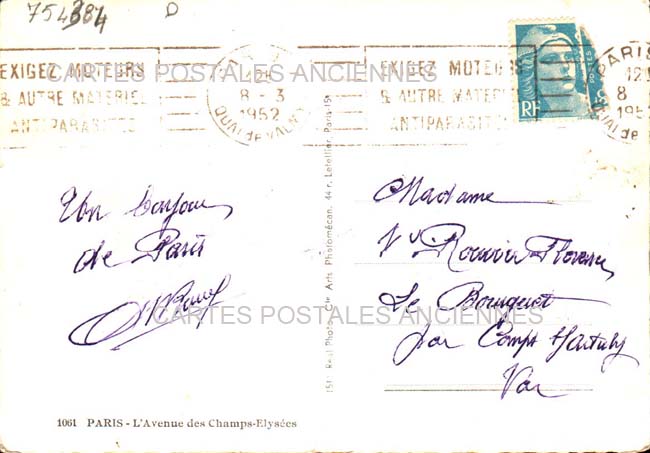 754384 D
EXIGEZ MOTEURS
& AUTRE MATERIEL
ANTIPARASITES
12H
8 - 3
1952
QUAI de VALMY
EXIGEZ MOTEURS
& AUTRE MATERIEL
ANTIPARASITES
RF
POSTES
PARIS
12H
8
1952
QUAI de
CARTES POSTALES ANCIENNES
Un bonjour
de Paris
Madame
Vve Rouvier Florence
Le Bourguet
par Comps s/Artuby
Var
CARTES POSTALES ANCIENNES
Real Photo. Cie Arts Photomécan. 44 r. Letellier Paris-15e
1061 PARIS - L'Avenue des Champs-Elysées